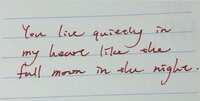 You live quietly in
my heart like the
full moon in the night.